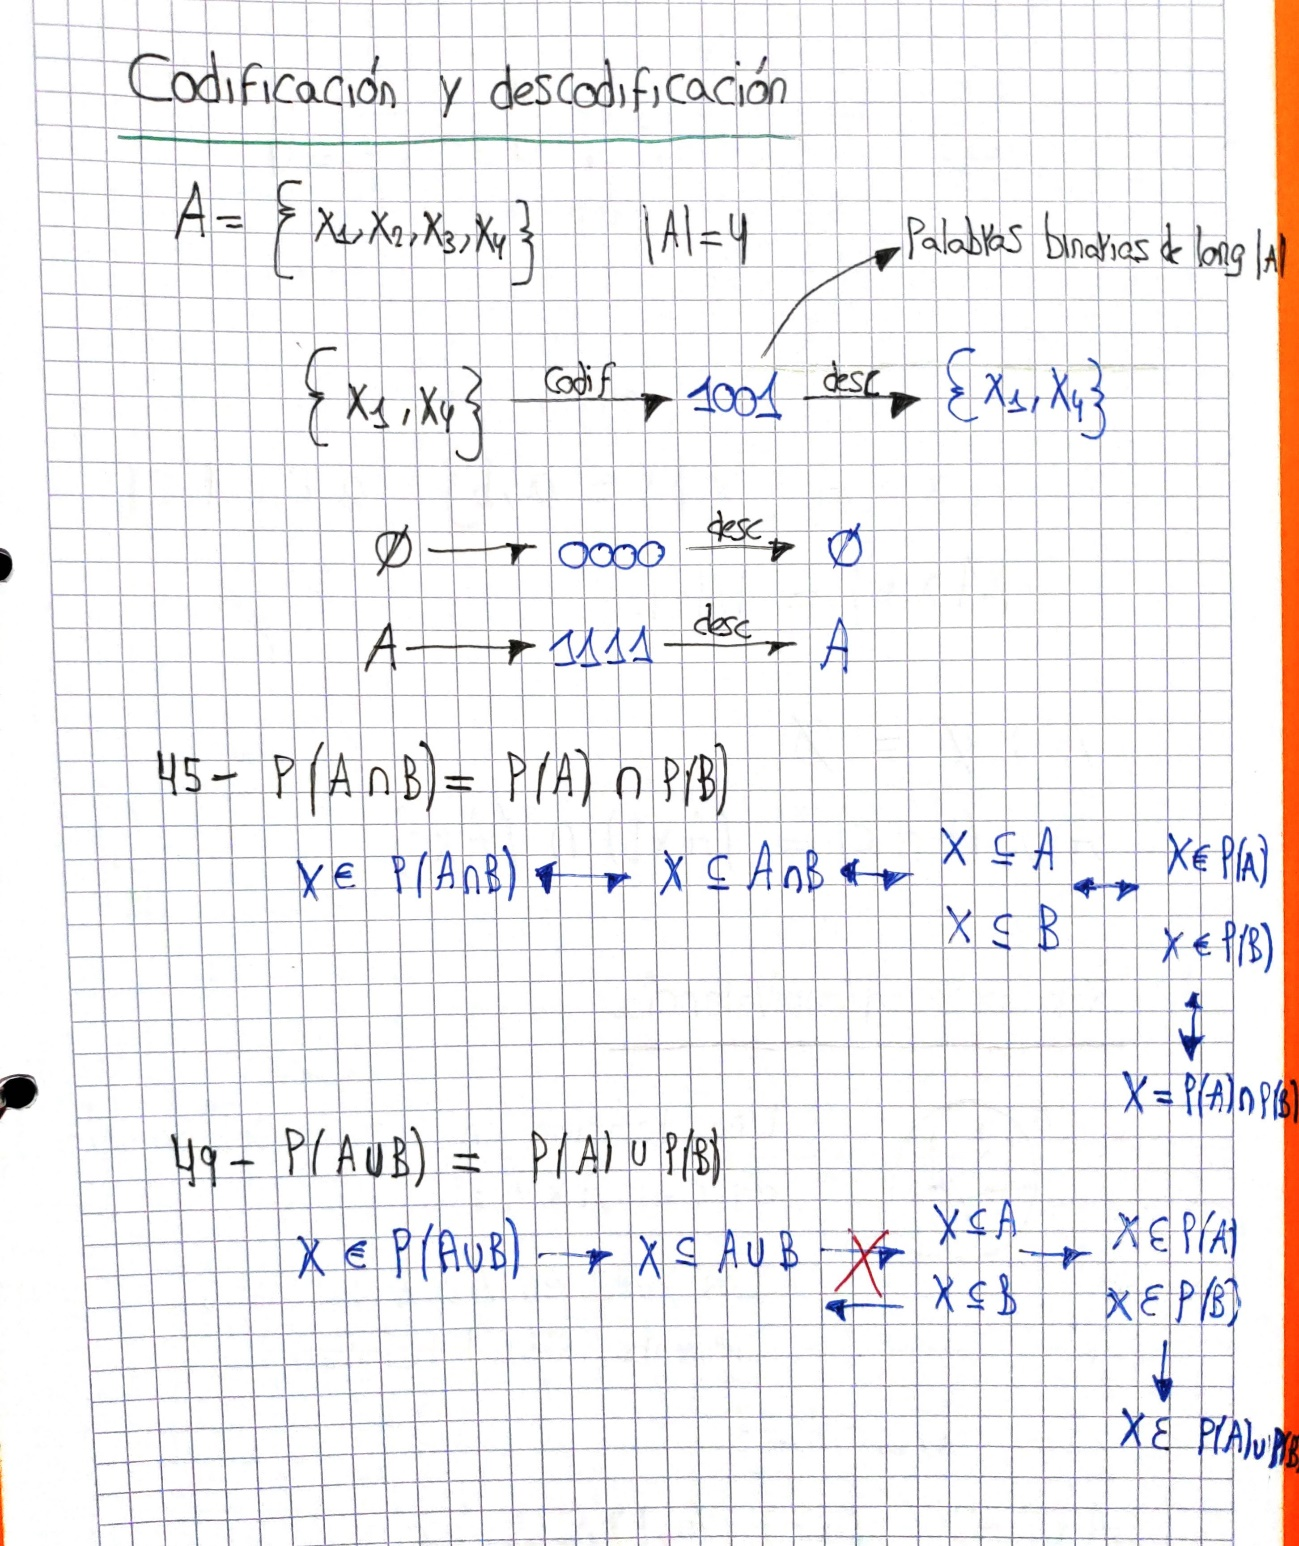 Codificación y descodificación
A = { x₁, x₂, x₃, x₄ } |A| = 4
Palabras binarias de long |A|
{ x₁, x₄ } codif → 1001 desc → { x₁, x₄ }
∅ → 0000 desc → ∅
A → 1111 desc → A
45- P(A∩B) = P(A) ∩ P(B)
X ∈ P(A∩B) ↔ X ⊆ A∩B ↔ X ⊆ A ↔ X ∈ P(A)
X ⊆ B X ∈ P(B)
↕
X = P(A)∩P(B)
49- P(A∪B) = P(A) ∪ P(B)
X ∈ P(A∪B) → X ⊆ A∪B → X ⊆ A → X ∈ P(A)
← X ⊆ B X ∈ P(B)
↓
X ∈ P(A)∪P(B)